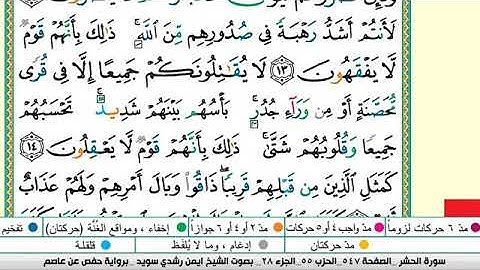 لَأَنتُمْ أَشَدُّ رَهْبَةً فِى صُدُورِهِم مِّنَ ٱللَّهِ ۚ ذَٰلِكَ بِأَنَّهُمْ قَوْمٌ
لَّا يَفْقَهُونَ ١٣ لَا يُقَٰتِلُونَكُمْ جَمِيعًا إِلَّا فِى قُرًى
مُّحَصَّنَةٍ أَوْ مِن وَرَآءِ جُدُرٍۭ ۚ بَأْسُهُم بَيْنَهُمْ شَدِيدٌ ۚ تَحْسَبُهُمْ
جَمِيعًا وَقُلُوبُهُمْ شَتَّىٰ ۚ ذَٰلِكَ بِأَنَّهُمْ قَوْمٌ لَّا يَعْقِلُونَ ١٤
كَمَثَلِ ٱلَّذِينَ مِن قَبْلِهِمْ قَرِيبًا ۖ ذَاقُوا۟ وَبَالَ أَمْرِهِمْ وَلَهُمْ عَذَابٌ
مدّ ٦ حركات لزوماً مدّ واجب ٤ أو ٥ حركات مدّ ٢ أو ٤ أو ٦ جوازاً إخفاء، ومواقع الغُنَّة (حركتان) تفخيم
مدّ حركتان إدغام، وما لا يُلفَظ قلقلة
سورة الحشر _ الصفحة ٥٤٧ _ الحزب ٥٥ _ الجزء ٢٨ _ بصوت الشيخ ايمن رشدي سويد _ برواية حفص عن عاصم